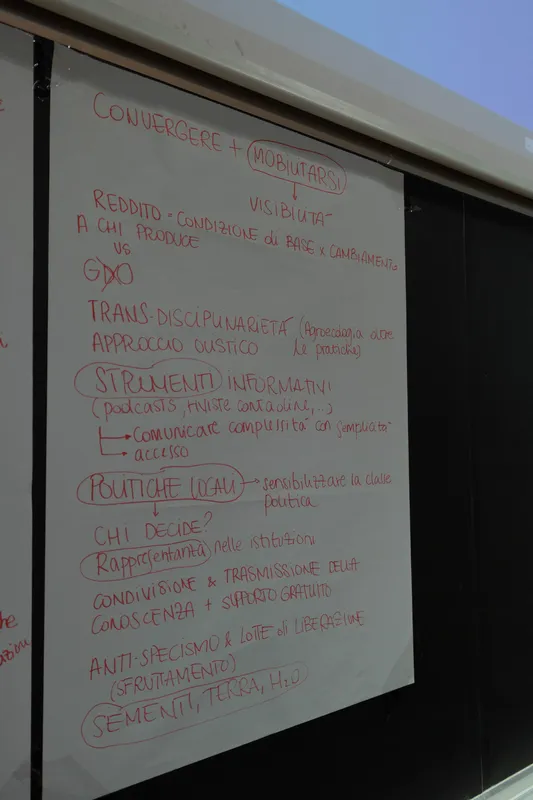 CONVERGERE + MOBILITARSI
VISIBILITÀ
REDDITO = CONDIZIONE di BASE x CAMBIAMENTO
A CHI PRODUCE
VS
GDO
TRANS-DISCIPLINARIETÀ (Agroecologia oltre
APPROCCIO OLISTICO le pratiche)
STRUMENTI INFORMATIVI
(podcasts, riviste contadine, ...)
→ comunicare complessità con semplicità
→ accesso
POLITICHE LOCALI → sensibilizzare la classe
politica
CHI DECIDE?
Rappresentanza nelle istituzioni
CONDIVISIONE & TRASMISSIONE DELLA
CONOSCENZA + SUPPORTO GRATUITO
ANTI-SPECISMO & LOTTE di LIBERAZIONE
(SFRUTTAMENTO)
SEMENTI, TERRA, H2O